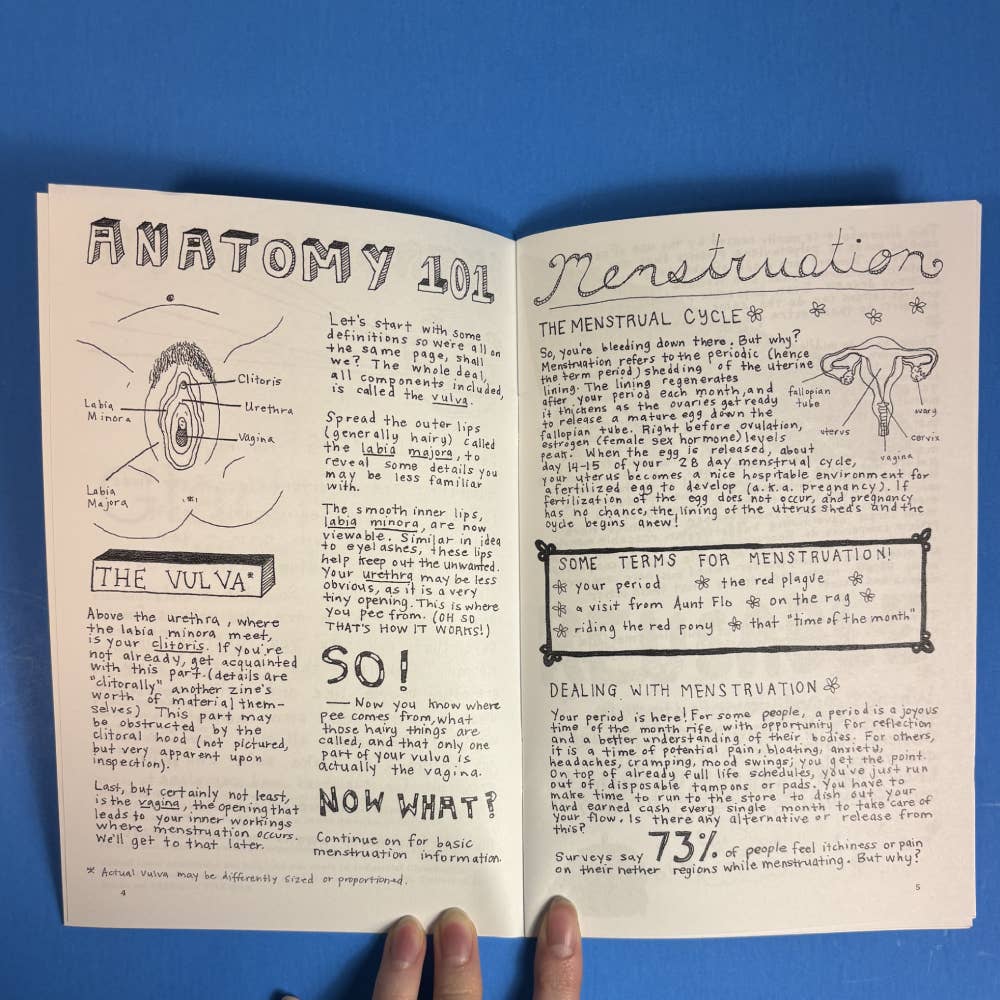 ANATOMY 101
Clitoris
Urethra
Labia
Minora
Vagina
Labia
Majora
THE VULVA*
Above the urethra, where
the labia minora meet,
is your clitoris. If you're
not already, get acquainted
with this part. (details are
"clitorally" another zine's
worth of material them-
selves) This part may
be obstructed by the
clitoral hood (not pictured,
but very apparent upon
inspection).
Last, but certainly not least,
is the vagina, the opening that
leads to your inner workings
where menstruation occurs.
We'll get to that later.
Let's start with some
definitions so we're all on
the same page, shall
we? The whole deal,
all components included,
is called the vulva.
Spread the outer lips
(generally hairy) called
the labia majora, to
reveal some details you
may be less familiar
with.
The smooth inner lips,
labia minora, are now
viewable. Similar in idea
to eyelashes, these lips
help keep out the unwanted.
Your urethra may be less
obvious, as it is a very
tiny opening. This is where
you pee from. (OH SO
THAT'S HOW IT WORKS!)
SO!
— Now you know where
pee comes from, what
those hairy things are
called, and that only one
part of your vulva is
actually the vagina.
NOW WHAT?
Continue on for basic
menstruation information.
* Actual vulva may be differently sized or proportioned.
4
Menstruation
THE MENSTRUAL CYCLE
So, you're bleeding down there. But why?
Menstruation refers to the periodic (hence
the term period) shedding of the uterine
lining. The lining regenerates
after your period each month, and
it thickens as the ovaries get ready
to release a mature egg down the
fallopian tube. Right before ovulation,
estrogen (female sex hormone) levels
peak. When the egg is released, about
day 14-15 of your 28 day menstrual cycle,
your uterus becomes a nice hospitable environment for
a fertilized egg to develop (a.k.a. pregnancy). If
fertilization of the egg does not occur, and pregnancy
has no chance, the lining of the uterus sheds and the
cycle begins anew!
fallopian
tube
ovary
uterus
cervix
vagina
SOME TERMS FOR MENSTRUATION!
your period the red plague
a visit from Aunt Flo on the rag
riding the red pony that "time of the month"
DEALING WITH MENSTRUATION
Your period is here! For some people, a period is a joyous
time of the month rife with opportunity for reflection
and a better understanding of their bodies. For others,
it is a time of potential pain, bloating, anxiety,
headaches, cramping, mood swings; you get the point.
On top of already full life schedules, you've just run
out of disposable tampons or pads. You have to
make time to run to the store to dish out your
hard earned cash every single month to take care of
your flow. Is there any alternative or release from
this?
Surveys say 73% of people feel itchiness or pain
on their nether regions while menstruating. But why?
5